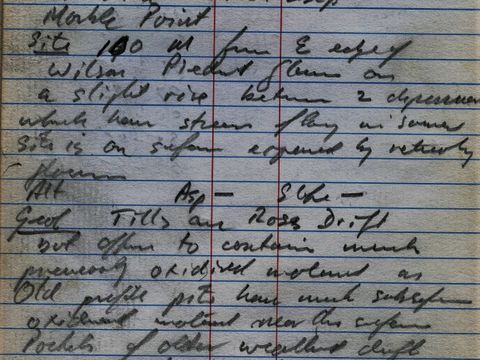 Marble Point
Site 100 M from E edge of
Wilson Piedmt Glacier on
a slight rise between 2 depressions
which have stream flow in summer
Site is on surface exposed by retreating
Alt Asp — Slope —
Geol Tills are Ross Drift
but appear to contain much
previously oxidised material as
Old profile pits have much subsurface
oxidised material near the surface
Pockets of older weathered drift